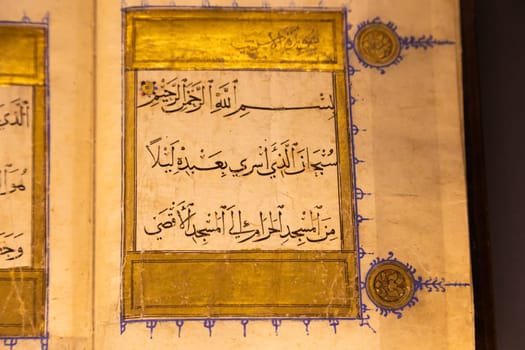 بِسْمِ اللَّهِ الرَّحْمَنِ الرَّحِيمِ
سُبْحَانَ الَّذِي أَسْرَى بِعَبْدِهِ لَيْلًا
مِنَ الْمَسْجِدِ الْحَرَامِ إِلَى الْمَسْجِدِ الْأَقْصَى